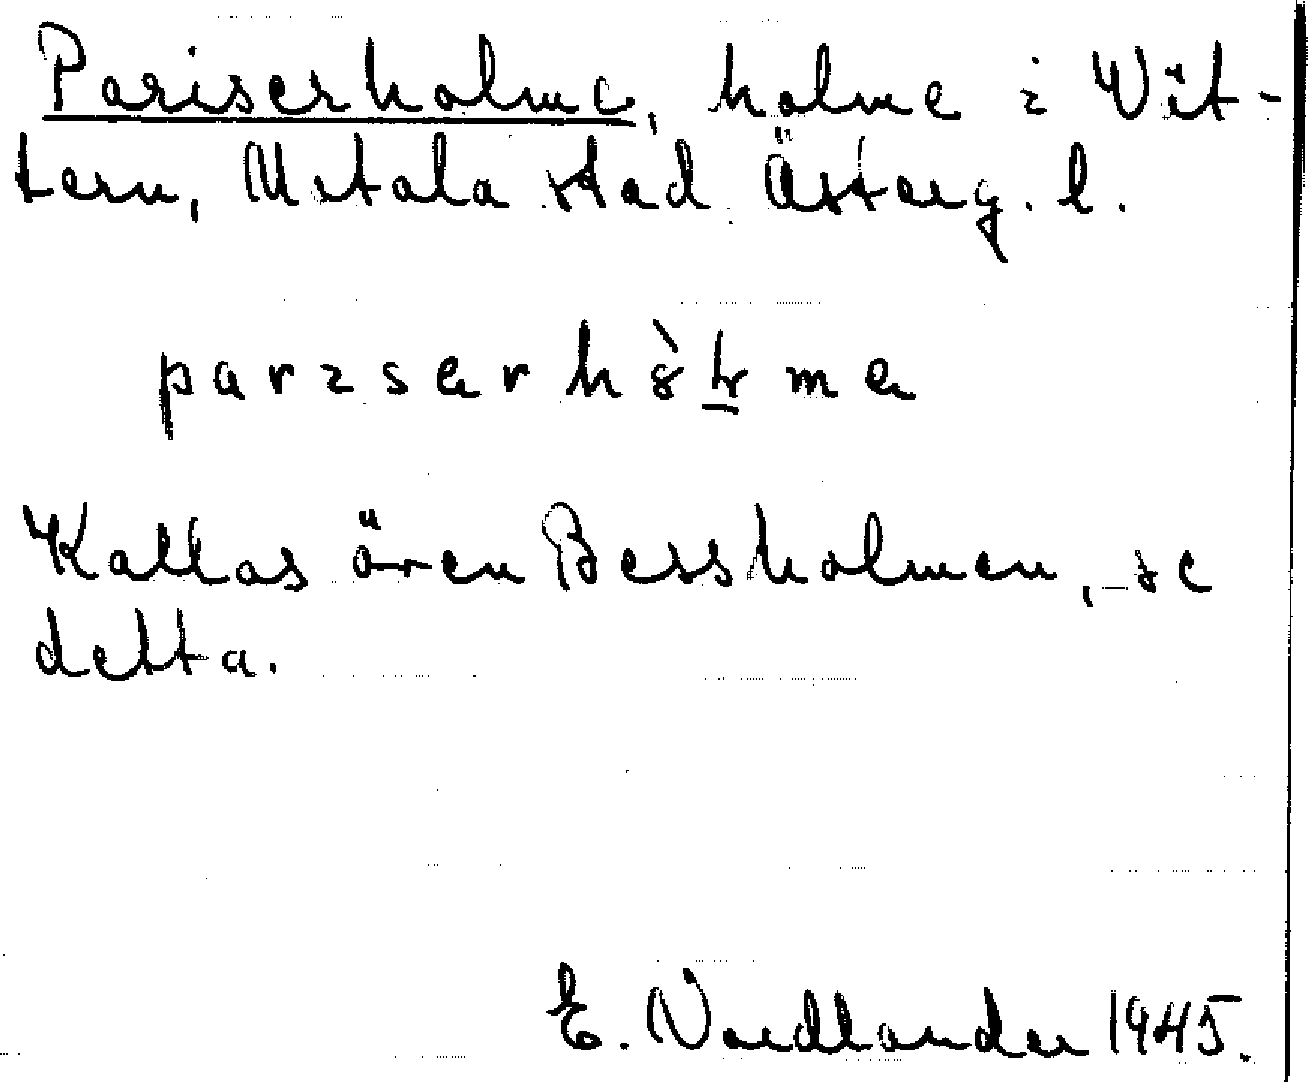 Pariserholme, holme i Vät-
tern, Motala stad Österg. l.
Kallas även Bessholmen, se
detta.
E. Nordlander 1945.